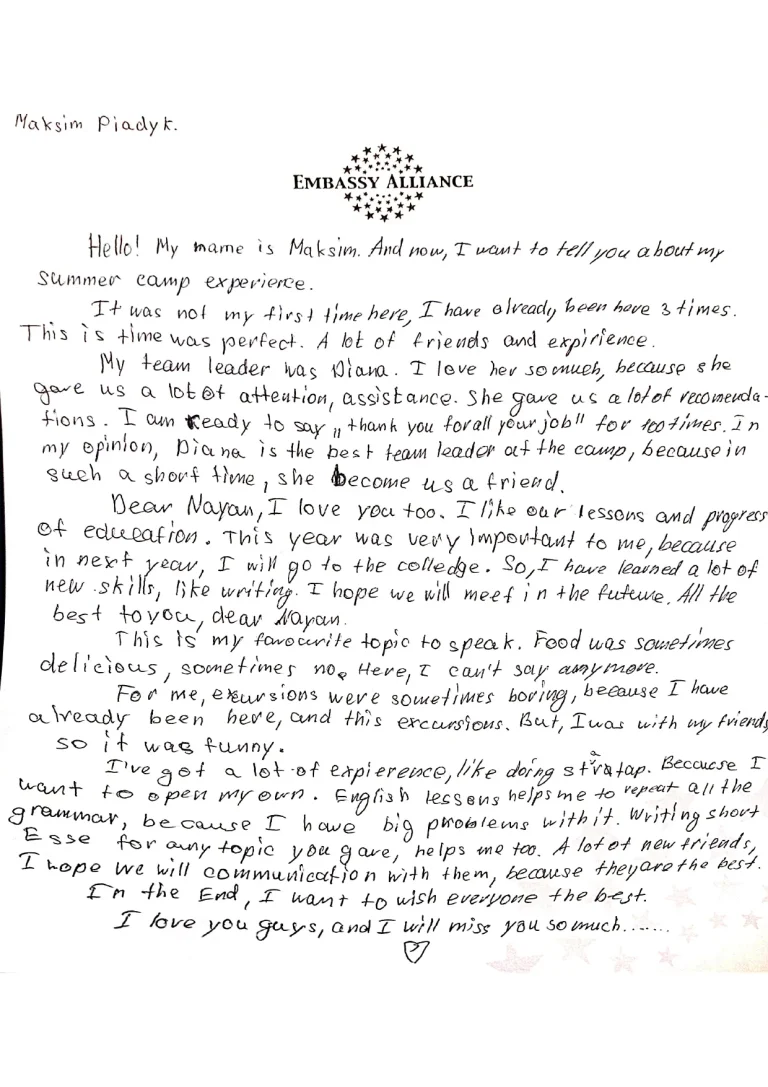 Maksim Piadyk.
EMBASSY ALLIANCE
Hello! My name is Maksim. And now, I want to tell you about my
summer camp experience.
It was not my first time here, I have already been here 3 times.
This is time was perfect. A lot of friends and expirience.
My team leader was Diana. I love her so much, because she
gave us a lot of attention, assistance. She gave us a lot of recomenda-
tions. I am ready to say „thank you for all your job" for 100 times. In
my opinion, Diana is the best team leader at the camp, because in
such a short time, she become us a friend.
Dear Nayan, I love you too. I like our lessons and progress
of education. This year was very important to me, because
in next year, I will go to the colledge. So, I have learned a lot of
new skills, like writing. I hope we will meet in the future. All the
best to you, dear Nayan.
This is my favourite topic to speak. Food was sometimes
delicious, sometimes no. Here, I can't say anymore.
For me, excursions were sometimes boring, because I have
already been here, and this excursions. But, I was with my friends
so it was funny.
I've got a lot of expierence, like doing stratap. Because I
want to open my own. English lessons helps me to repeat all the
grammar, because I have big problems with it. Writing short
Esse for any topic you gave, helps me too. A lot of new friends,
I hope we will communication with them, because they are the best.
In the End, I want to wish everyone the best.
I love you guys, and I will miss you so much.......